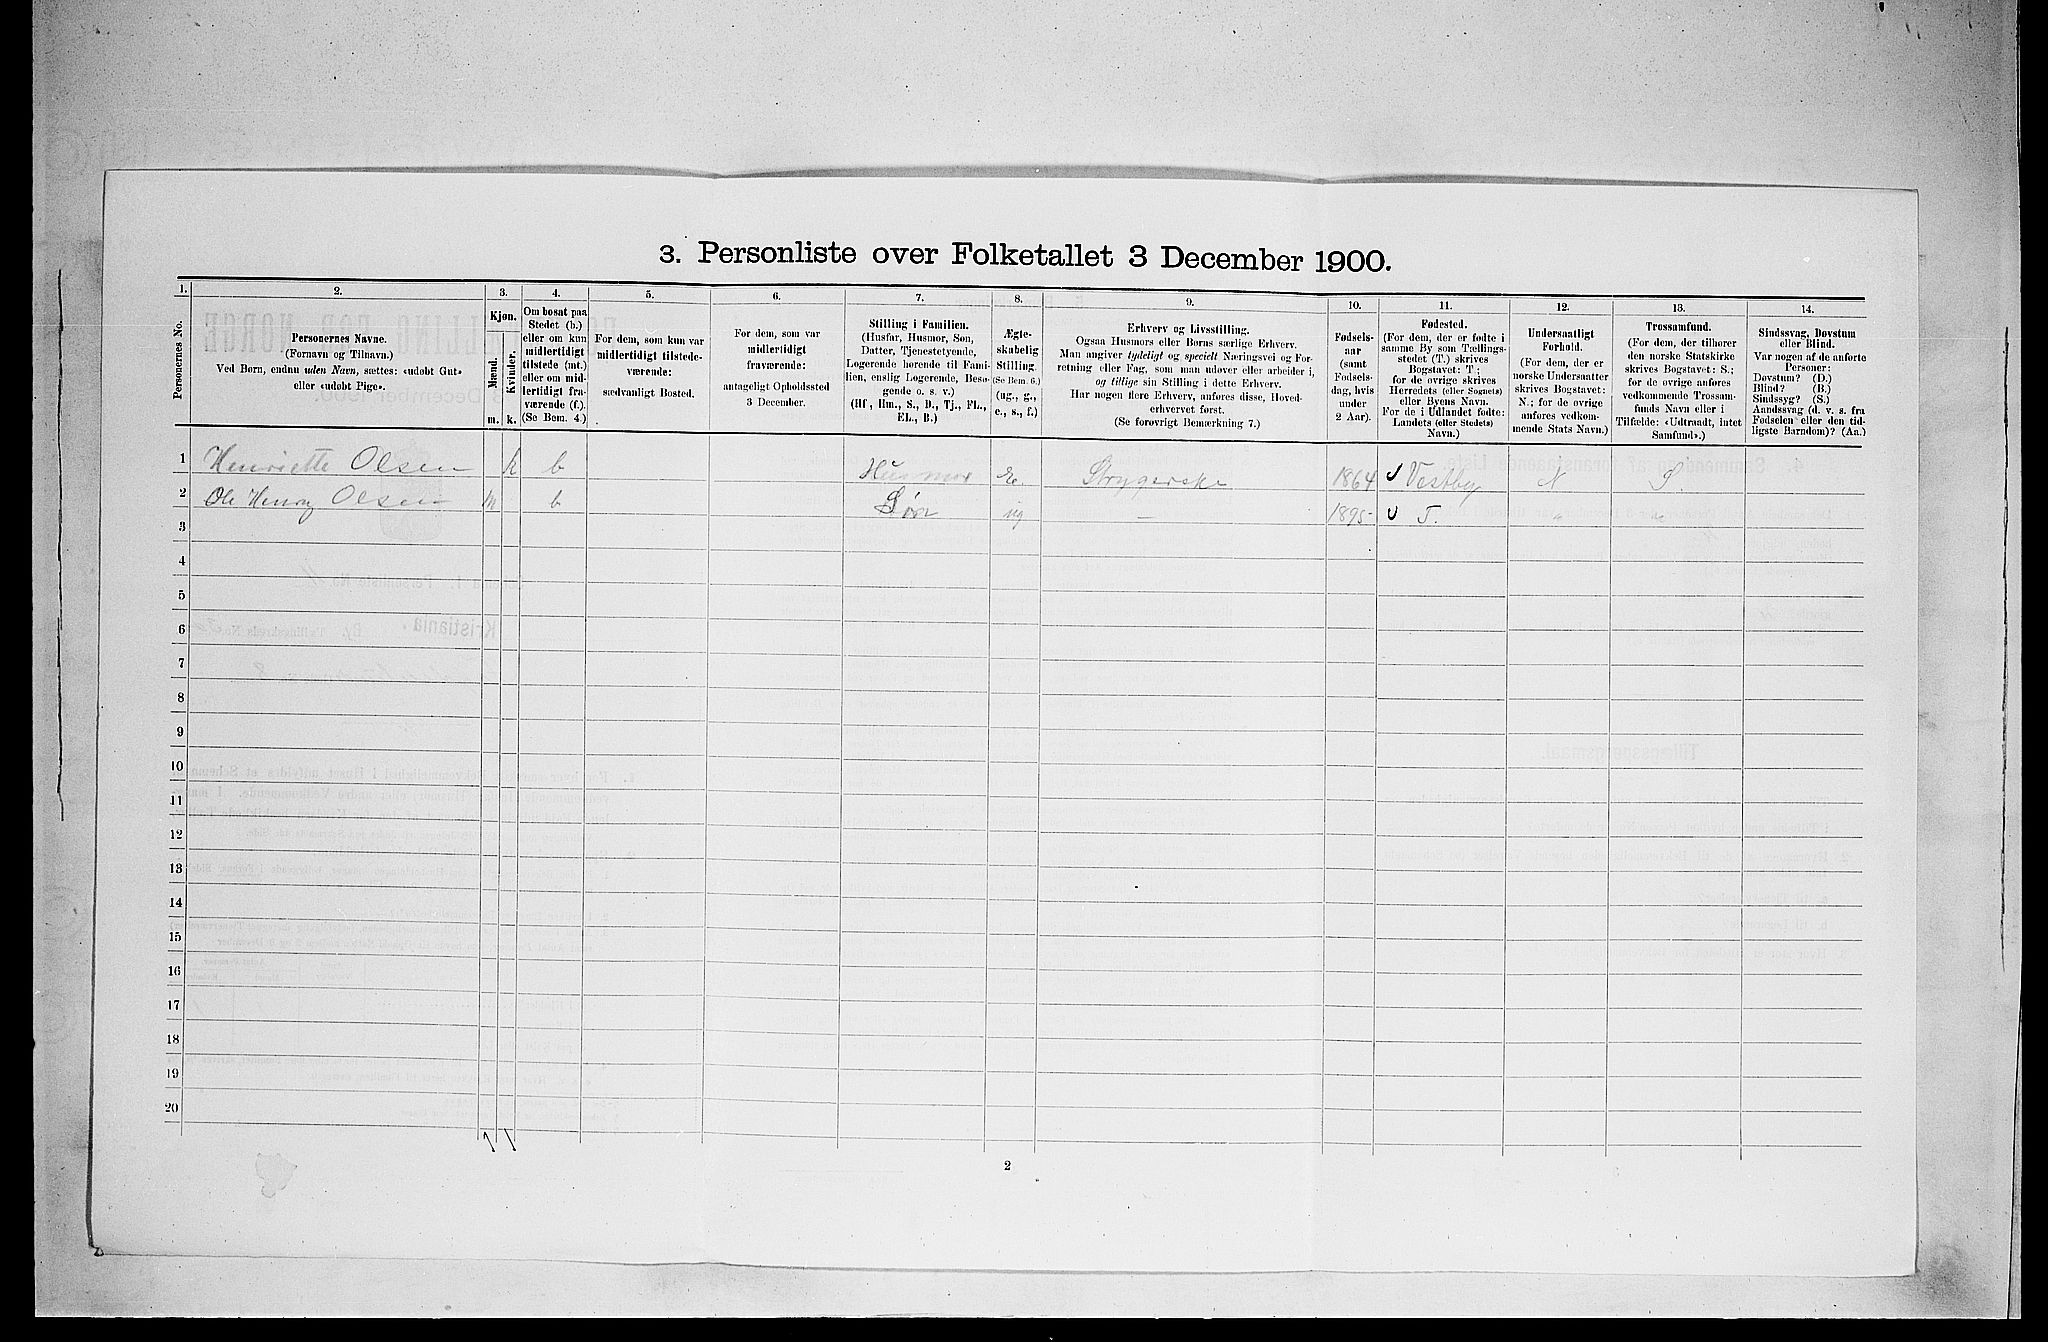 3. Personliste over Folketallet 3 December 1900.
1.
2.
3.
4.
5.
6.
7.
8.
9.
10.
11.
12.
13.
14.
Personernes No.
Personernes Navne.
(Fornavn og Tilnavn.)
Ved Børn, endnu uden Navn, sættes: «udøbt Gut»
eller «udøbt Pige».
Kjøn.
Mænd.
Kvinder.
m.
k.
Om bosat paa
Stedet (b.)
eller om kun
midlertidigt
tilstede (mt.)
eller om mid-
lertidigt fra-
værende (f.).
(Se Bem. 4.)
For dem, som kun var
midlertidigt tilstede-
værende:
sædvanligt Bosted.
For dem, som var
midlertidigt
fraværende:
antageligt Opholdssted
3 December.
Stilling i Familien.
(Husfar, Husmor, Søn,
Datter, Tjenestetyende,
Logerende hørende til Fami-
lien, enslig Logerende, Besø-
gende o. s. v.)
(Hf., Hm., S., D., Tj., FL.,
EL., B.)
Ægte-
skabelig
Stilling.
(Se Bem. 6.)
(ug., g.,
e., s., f.)
Erhverv og Livsstilling.
Ogsaa Husmors eller Børns særlige Erhverv.
Man angiver tydeligt og specielt Næringsvei og For-
retning eller Fag, som man udøver eller arbeider i,
og tillige sin Stilling i dette Erhverv.
Har nogen flere Erhverv, anføres disse, Hoved-
erhvervet først.
(Se forøvrigt Bemærkning 7.)
Fødsels-
aar
(samt
Fødsels-
dag, hvis
under
2 Aar).
Fødested.
(For dem, der er fødte i
samme By som Tællings-
stedet (T.) skrives
Bogstavet: T.;
for de øvrige skrives
Herredets (eller Sognets)
eller Byens Navn.
For de i Udlandet fødte:
Landets (eller Stedets)
Navn.)
Undersaatligt
Forhold.
(For dem, der er
norske Undersaatter
skrives Bogstavet:
N.; for de øvrige
anføres vedkom-
mende Stats Navn.)
Trossamfund.
(For dem, der tilhører
den norske Statskirke
skrives Bogstavet: S.;
for de øvrige anføres
vedkommende Trossam-
funds Navn eller i
Tilfælde: «Udtraadt, intet
Samfund».)
Sindssvag, Døvstum
eller Blind.
Var nogen af de anførte
Personer:
Døvstum? (D.)
Blind? (B.)
Sindssyg? (S.)
Aandssvag (d. v. s. fra
Fødselen eller den tid-
ligste Barndom)? (Aa.)
1 Henriette Olsen k b Husmor E. Strygerske 1864 Vestby N S.
2 Ole Henry Olsen m b Søn ug — 1895 T. " "
3
4
5
6
7
8
9
10
11
12
13
14
15
16
17
18
19
20
1 1
2